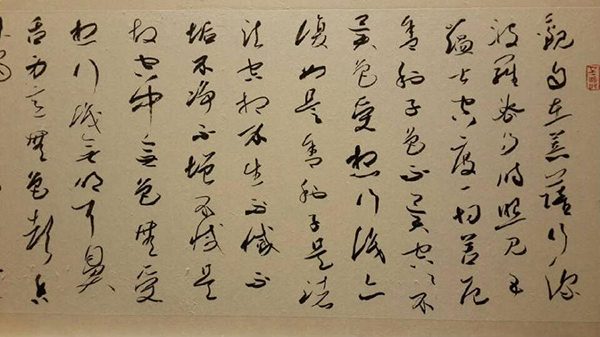 觀自在菩薩行深
波羅蜜多時照見五
蘊皆空度一切苦厄
舍利子色不異空空不
異色受想行識亦
復如是舍利子是諸
法空相不生不滅不
垢不淨不增不減是
故空中無色無受
想行識無眼耳鼻
舌身意無色聲香